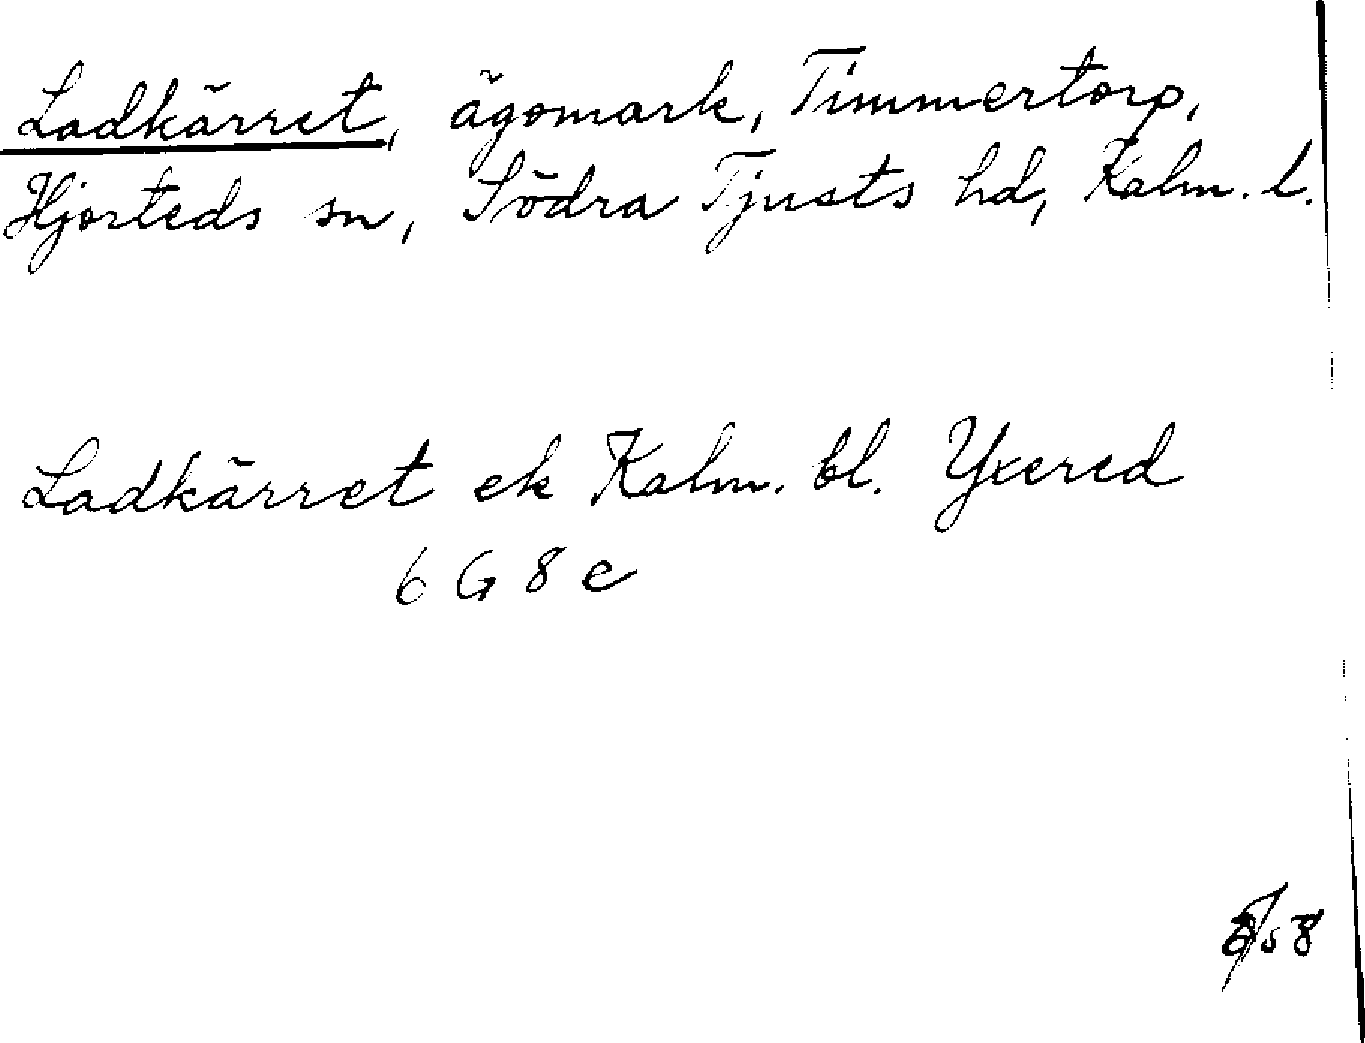 Ladkärret, ägomark, Timmertorp,
Hjorteds sn, Södra Tjusts hd, Kalm. l.
Ladkärret ek Kalm. bl. Yxered
6 G 8 e